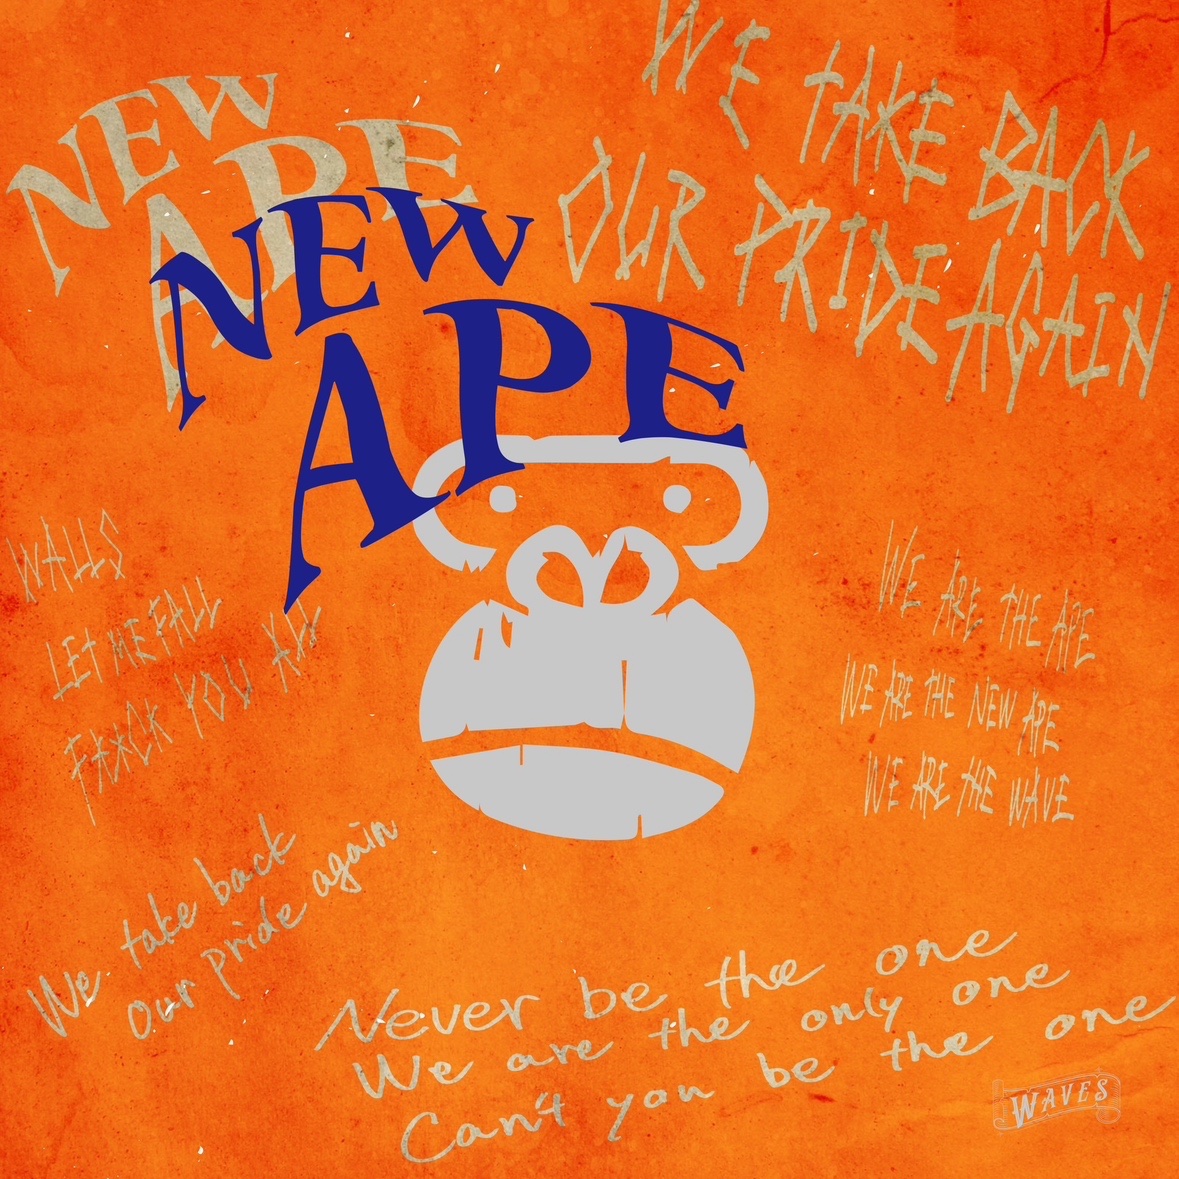 NEW
APE
NEW
APE
WE TAKE BACK
OUR PRIDE AGAIN
WALLS
LET ME FALL
F**CK YOU ALL
WE ARE THE APE
WE ARE THE NEW APE
WE ARE THE WAVE
We take back
our pride again
Never be the one
We are the only one
Can't you be the one
WAVES